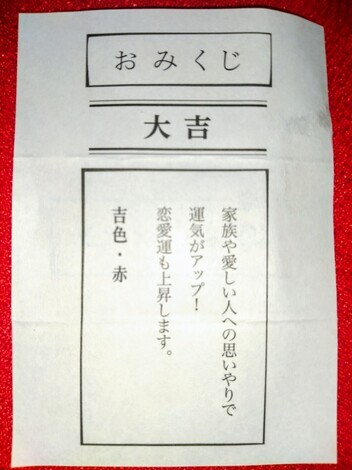 おみくじ
大吉
家族や愛しい人への思いやりで
運気がアップ！
恋愛運も上昇します。
吉色・赤